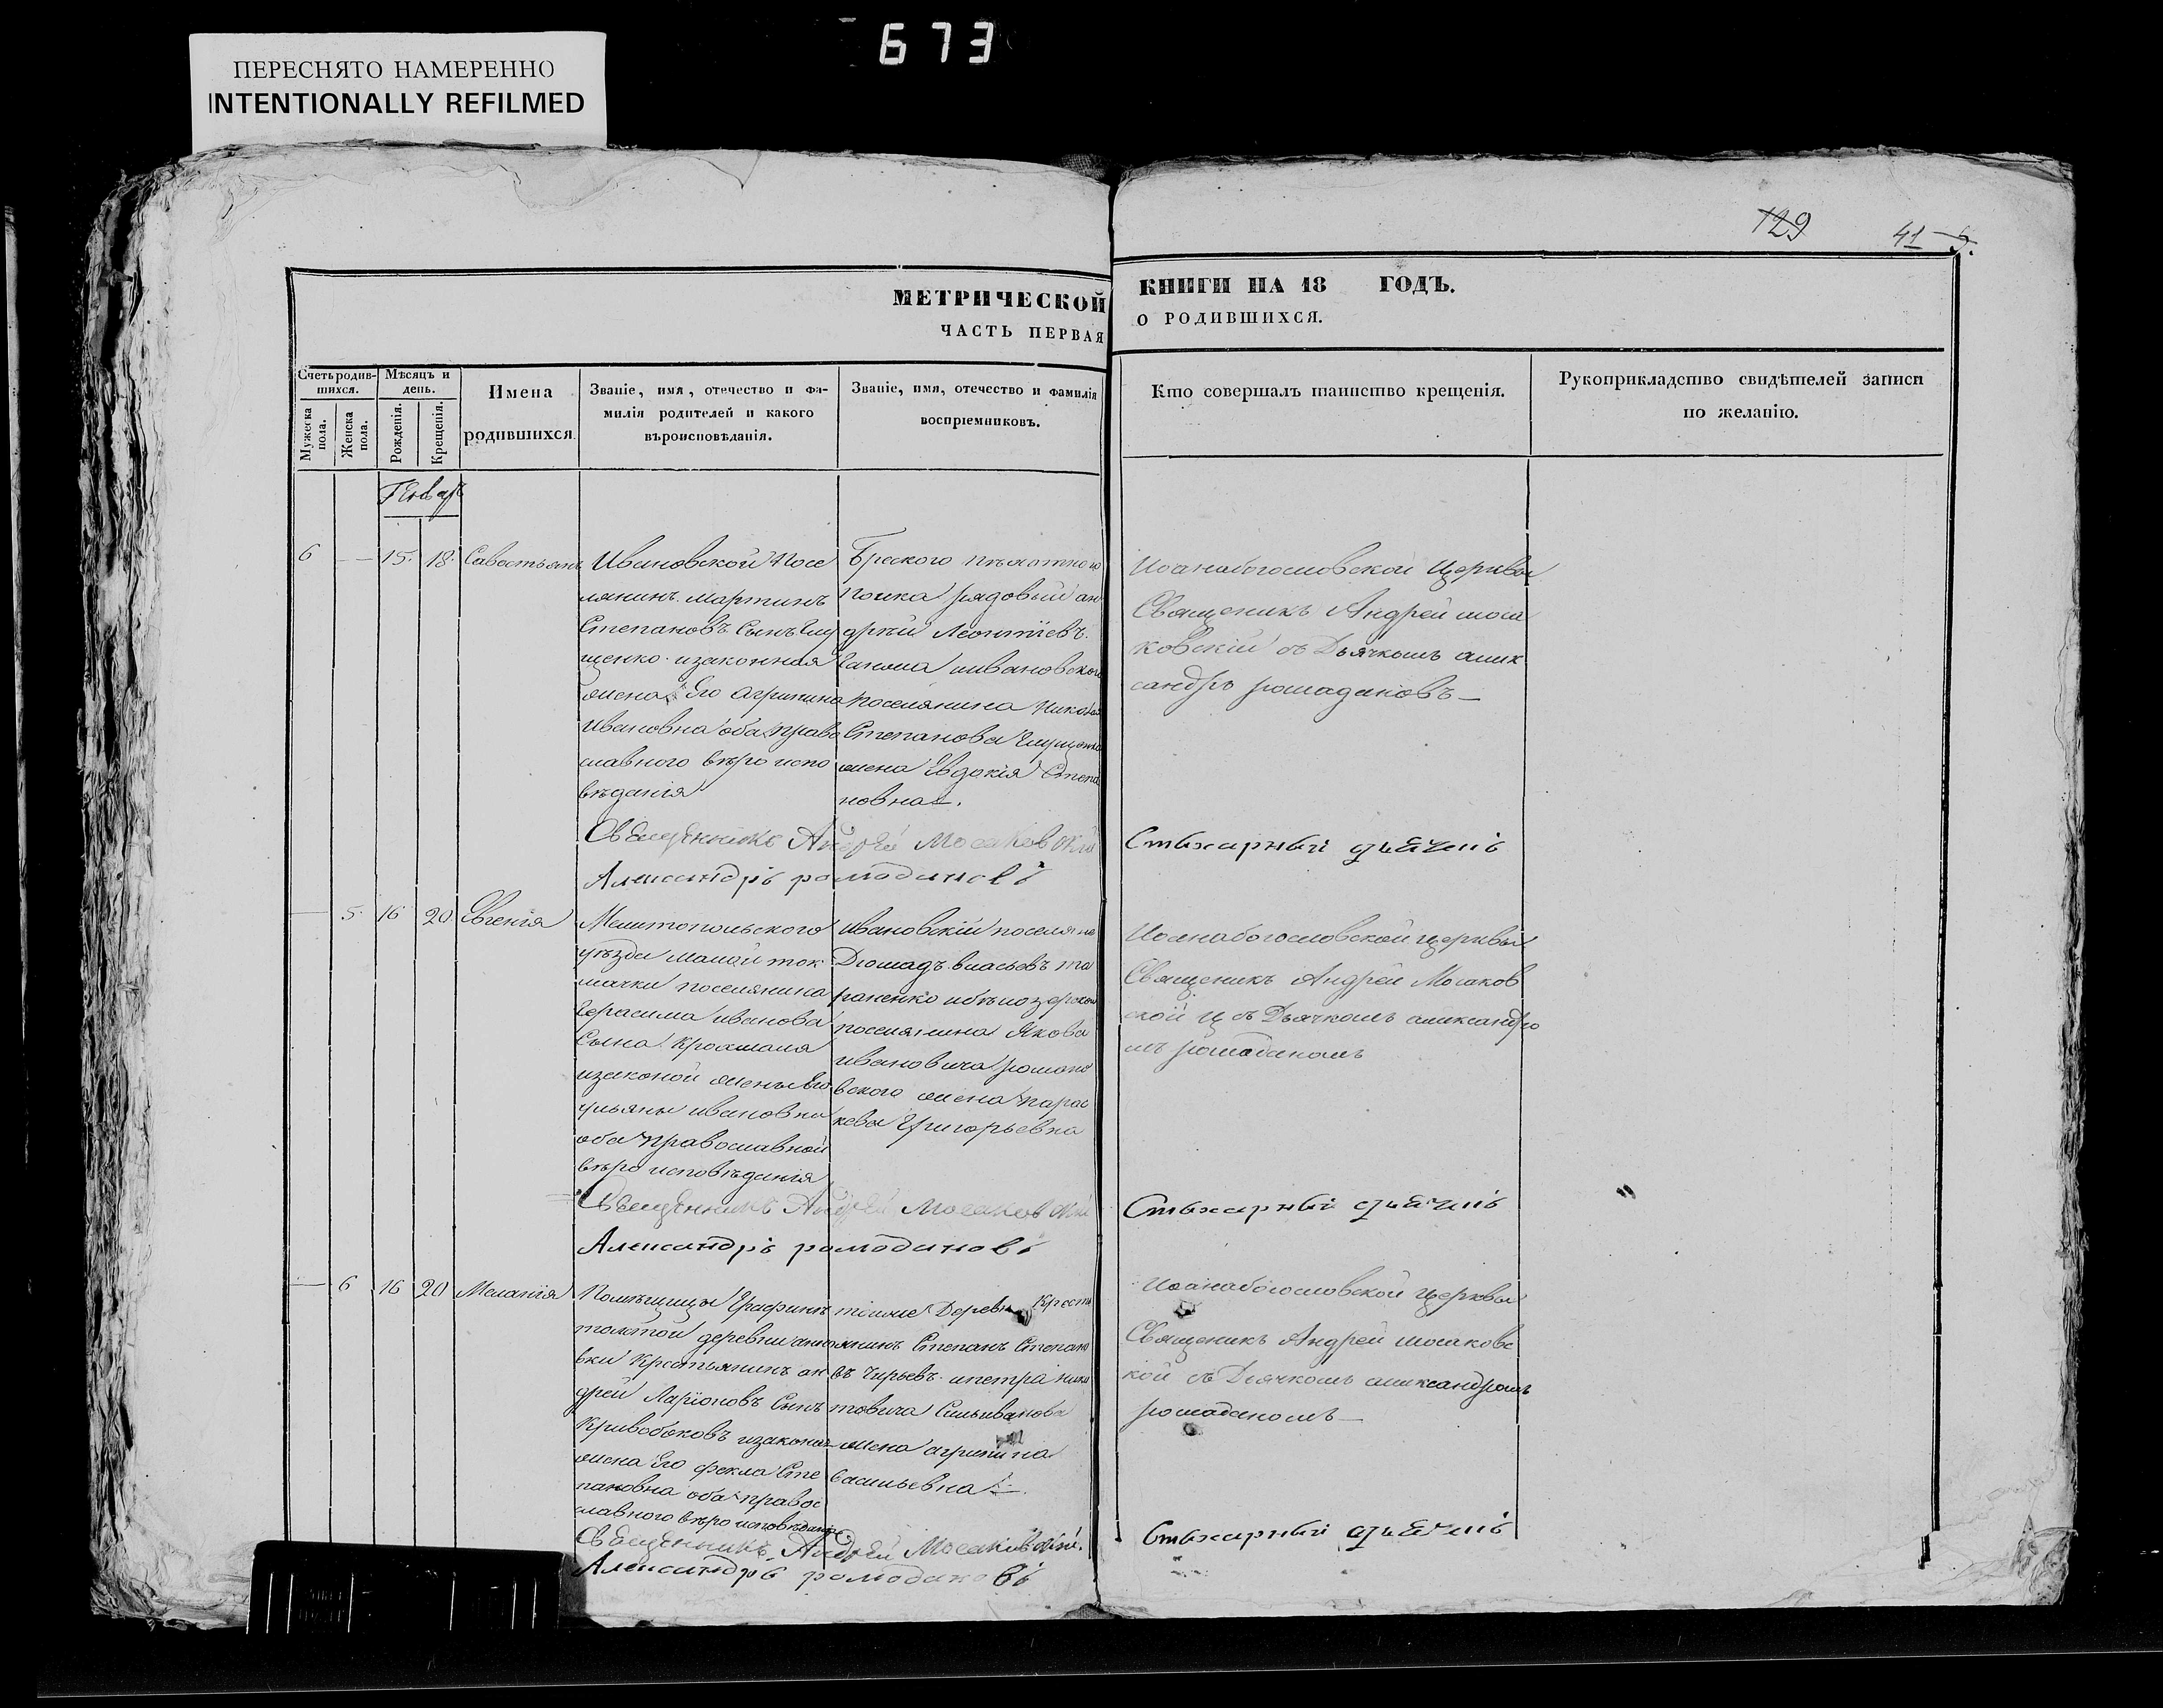 673
ПЕРЕСНЯТО НАМЕРЕННО
INTENTIONALLY REFILMED
129
41
МЕТРИЧЕСКОЙ КНИГИ НА 18 ГОДЪ.
ЧАСТЬ ПЕРВАЯ О РОДИВШИХСЯ.
Счетъ родившихся.
Мужеска пола.
Женска пола.
Мѣсяцъ и день.
Рожденія.
Крещенія.
Имена
родившихся.
Званіе, имя, отечество и фа-
милія родителей и какого
вѣроисповѣданія.
Званіе, имя, отечество и фамилія
воспріемниковъ.
Кто совершалъ таинство крещенія.
Рукоприкладство свидѣтелей записи
по желанію.
6 — 15. 18. Савостьянъ
Ивановской Посе
лянинъ Мартинъ
Степановъ Сынъ Глу
щенко изаконная
жена Его Агрипина
Ивановна оба право
славного вѣро испо
вѣданія
пѣхотного
полка рядовый ан
дрѣй Леонтіевъ
ивановской
поселянина Никол
Степанова Глущенко
жена Евдокія Степа
новна.
Иоанабогословской Церквы
Священикъ Андрей моса
ковскій съ Дьячкомъ алик
сандръ ромадановъ
Священникъ Андрей Мосаковскій
Стихарный дьячекъ
Александръ ромодановъ
— 5. 16 20. Евгенія
Мелитопольского
уѣзда Малой ток
мачки поселянина
Герасима иванова
Сына Крохмаля
изаконой жены Его
ульяны ивановны
оба православной
вѣро исповѣданія
ивановскій поселяне
власьевъ та
раненко ибѣлозерской
поселянина Якова
ивановича романо
вского жена парас
кева Григорьевна
Иоанабогословской церквы
Священикъ Андрей Мосаков
ской ц съ Дьячкомъ александро
мъ ромаданомъ
Священникъ Андрей Мосаковскій
Стихарный дьячекъ
Александръ ромодановъ
— 6 16 20 Меланія
Помѣщицы Графини
толстой деревни анно
вки Крестьянинъ ан
дрей Ларіоновъ Сынъ
Кривобоковъ изаконая
жена Его фекла Сте
пановна оба правос
лавного вѣро исповѣданія
тойже Деревн Кресть
янинъ Степанъ Степано
въ ипетра ники
товича Сильиванова
жена агрипина
васильевна
Иоанабогословской церквы
Священикъ Андрей мосаковс
кой съ Дьячкомъ александромъ
ромаданомъ
Священникъ Андрей Мосаковскій.
Стихарный дьячекъ
Александръ ромодановъ